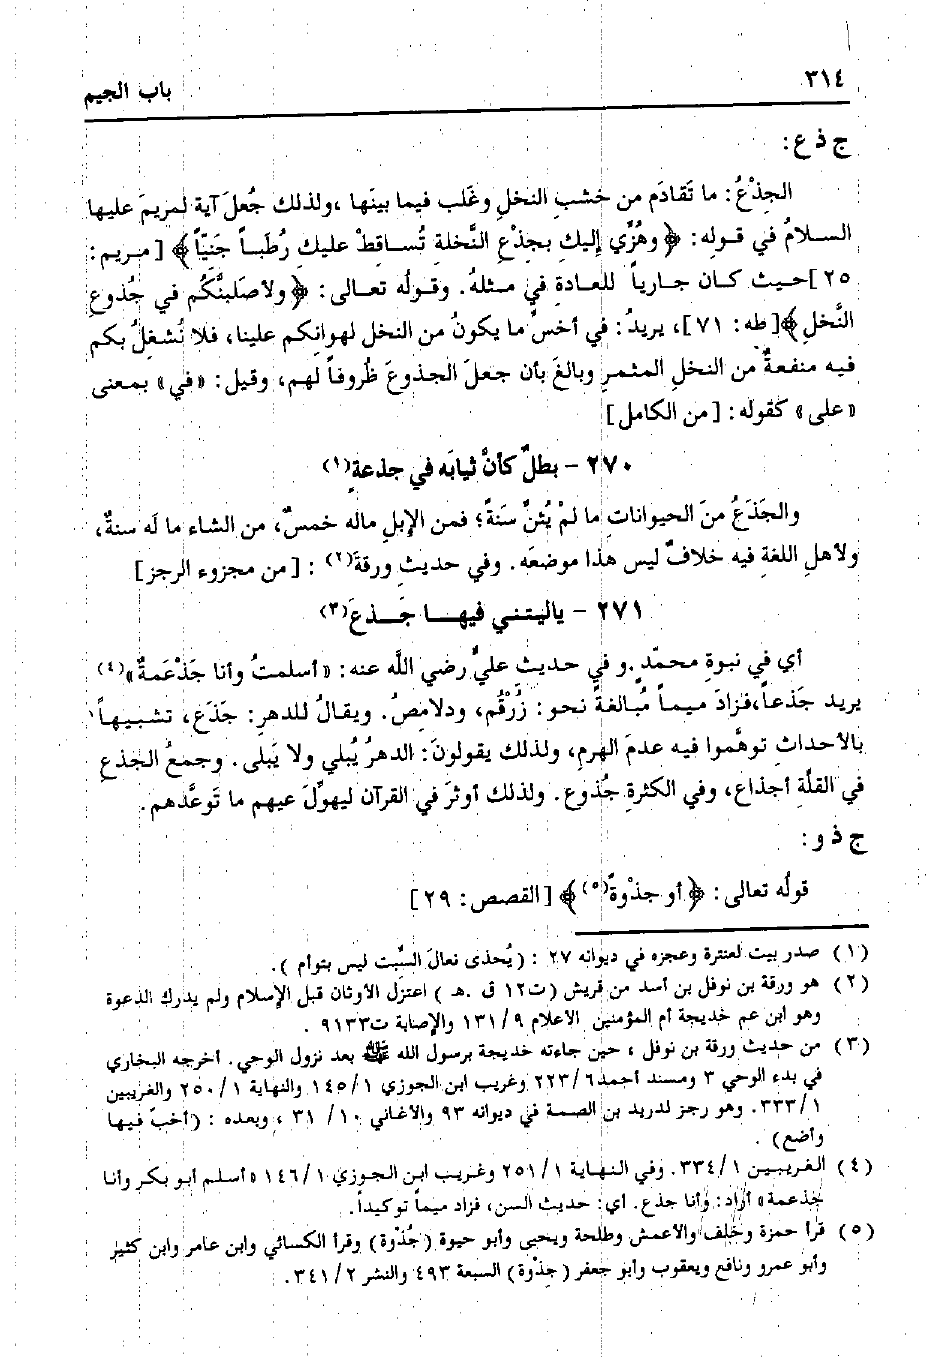 ٣١٤
باب الجيم
ج ذ ع:
الجِذْعُ: ما تَقادَم من خشبِ النخلِ وغَلب فيما بينَها، ولذلك جُعلَ آية لمريمَ عليها
السلامُ في قوله: ﴿وهُزِّي إليكِ بجِذْعِ النَّخلةِ تُساقِطْ عليكِ رُطَباً جَنيّاً﴾ [مريم:
٢٥] حيث كان جارياً للعادةِ في مثلهُ. وقولُه تعالى: ﴿ولأصَلبنَّكُم في جُذوعِ
النَّخلِ﴾[طه: ٧١]، يريدُ: في أخسِّ ما يكونُ من النخل لهوانِكم علينا، فلا نُشغلُ بكم
فيه منفعةٌ من النخلِ المثمرِ وبالغَ بأن جعلَ الجذوعَ ظُروفاً لهم، وقيل: «في» بمعنى
«على» كقوله: [من الكامل]
٢٧٠ - بطلٌ كأنَّ ثيابَه في جذعةٍ(١)
والجَذَعُ منَ الحيواناتِ ما لمْ يُثنِّ سَنةً؛ فمن الإبلِ ماله خمسٌ، من الشاء ما لَه سنةٌ،
ولأهلِ اللغةِ فيه خلافٌ ليس هذا موضعَه. وفي حديثِ ورقةَ(٢) : [من مجزوء الرجز]
٢٧١ - ياليتني فيهـا جَـذعَ(٣)
أي في نبوةِ محمّدٍ .و في حديثِ عليٌّ رضي اللَّه عنه: «أسلمتُ وأنا جَذْعَمةٌ»(٤)
يريد جَذعاً،فزادَ ميماً مُبالغةً نحو: زُرْقُم، ودلامِصُ. ويقالُ للدهرِ: جَذَع، تشبيهاً
بالأحداثِ توهَّموا فيه عدمَ الهرمِ، ولذلك يقولونَ: الدهرُ يُبلي ولا يَبلى. وجمعُ الجذعِ
في القلّةِ أجذاع، وفي الكثرةِ جُذوع. ولذلك أوثرَ في القرآن ليهوِّلَ عيهم ما تَوعَّدهم.
ج ذ و:
قولُه تعالى: ﴿أو جذْوةً(٥)﴾ [القصص: ٢٩]
(١) صدر بيت لعنترة وعجزه في ديوانه ٢٧ : (يُحذى نعالَ السِّبت ليس بتوأم ).
(٢) هو ورقة بن نوفل بن أسد من قريش (ت١٢ ق .هـ ) اعتزل الأوثان قبل الإسلام ولم يدرك الدعوة
وهو ابن عم خديجة أم المؤمنين الأعلام ٩ /١٣١ والإصابة ت٩١٣٣ .
(٣) من حديث ورقة بن نوفل ، حين جاءته خديجة برسول الله ﷺ بعد نزول الوحي. أخرجه البخاري
في بدء الوحي ٣ ومسند أحمد٦ /٢٢٣ وغريب ابن الجوزي ١ /١٤٥ والنهاية ١ /٢٥٠ والغريبين
١ /٣٣٣. وهو رجز لدريد بن الصمة في ديوانه ٩٣ والأغاني ١٠ / ٣١ ، وبعده : (أخبّ فيها
وأضع) .
(٤) الغريبين ١ /٣٣٤. وفي النهاية ١ /٢٥١ وغريب ابن الجوزي ١ /١٤٦ «أسلم أبو بكر وأنا
جذعمة» أراد: وأنا جذع. أي: حديث السن، فزاد ميماً توكيداً.
(٥) قرأ حمزة وخلف والأعمش وطلحة ويحيى وأبو حيوة (جُذْوة) وقرأ الكسائي وابن عامر وابن كثير
وأبو عمرو ونافع ويعقوب وأبو جعفر (جِذْوة) السبعة ٤٩٣ والنشر ٢ /٣٤١.